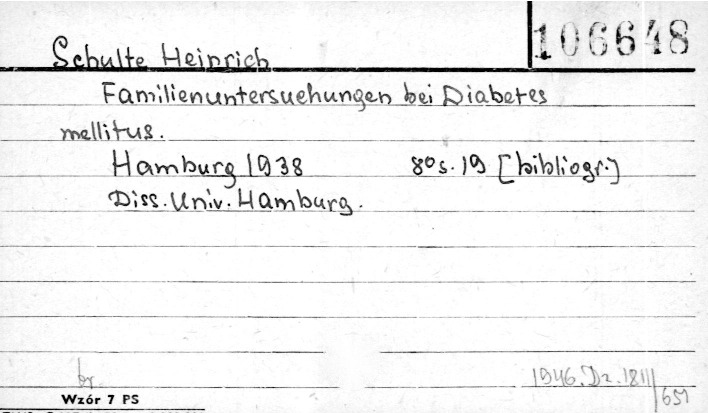 106648
Schulte Heinrich
Familienuntersuchungen bei Diabetes
mellitus.
Hamburg 1938 8° s. 19 [bibliogr.]
Diss. Univ. Hamburg.
br.
1946. Dz. 1811/651
Wzór 7 PS